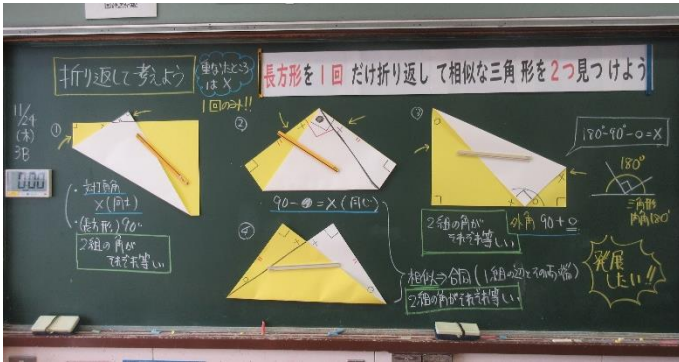 折り返して考えよう
重なったところは×
1回のみ!!
長方形を1回だけ折り返して相似な三角形を2つ見つけよう
11/24
(木)
3B
0:00
①
・対頂角
×(同士)
・(長方形)90°
2組の角が
それぞれ等しい
②
90-●=×(同じ)
③
180°-90°-○=×
2組の角が
それぞれ等しい
外角 90+○
180°
三角形
内角180°
④
相似⇒合同(1組の辺とその両端)
2組の角がそれぞれ等しい
発展
したい!!